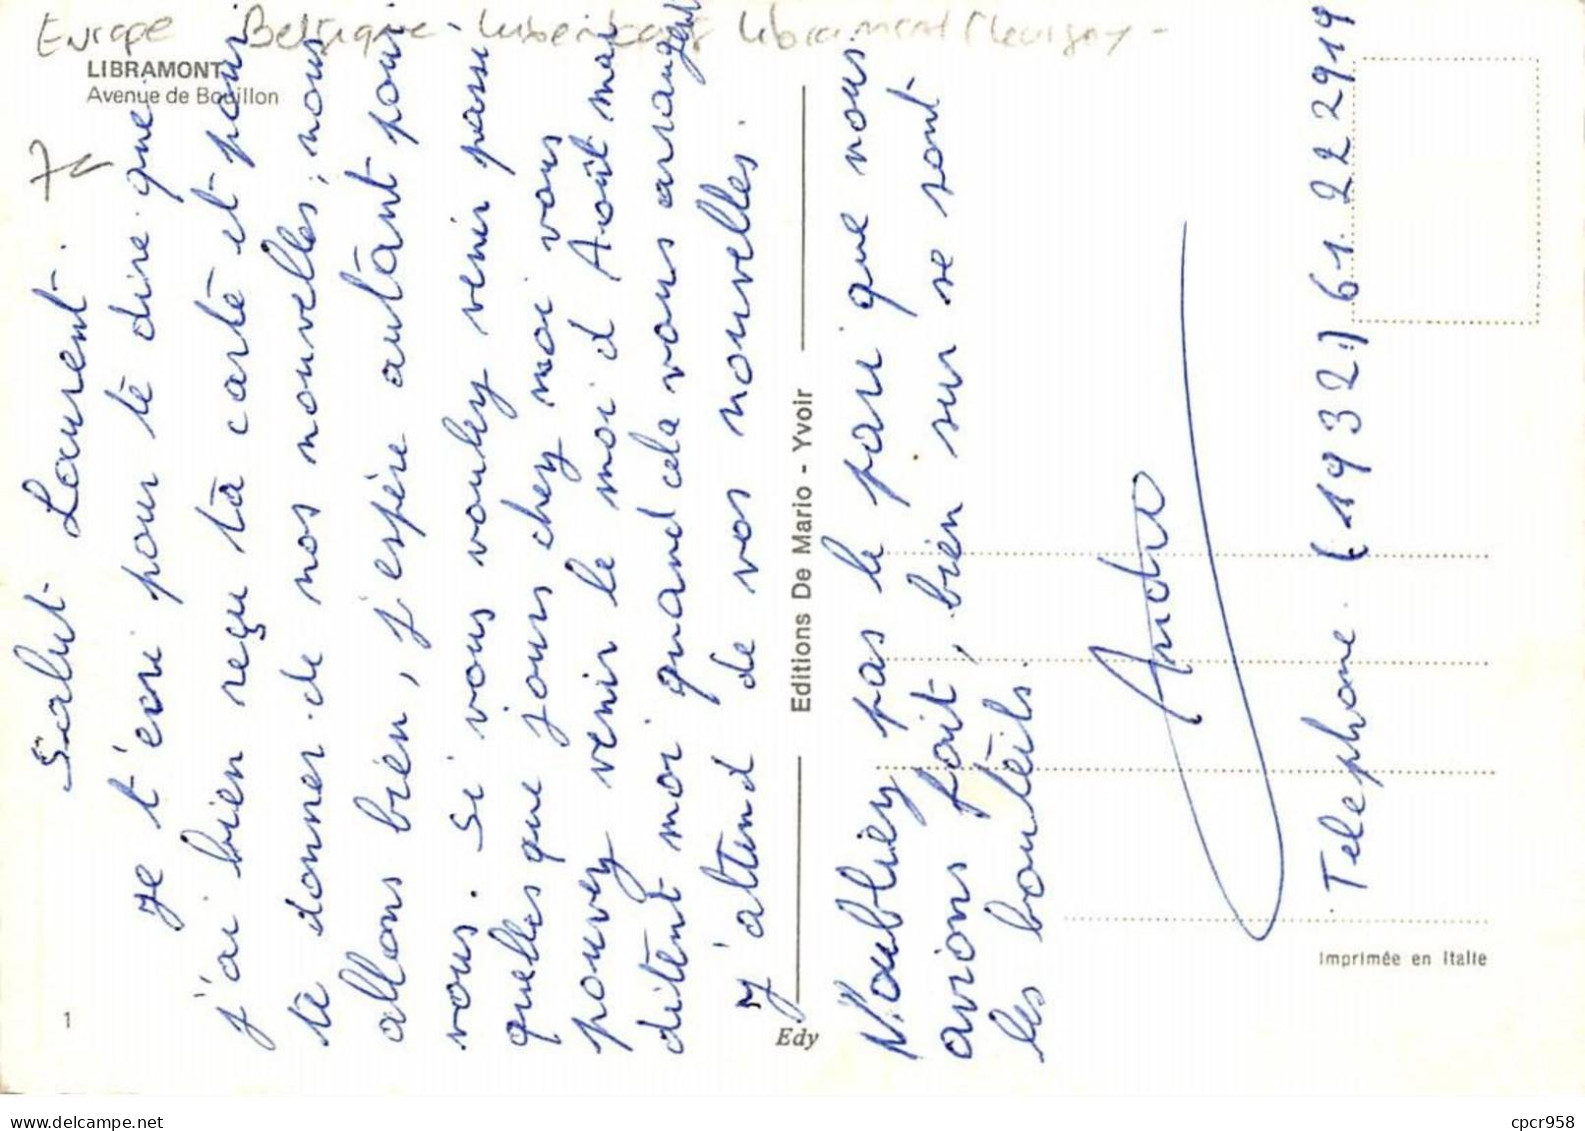 Europe Belgique Luxembourg Libramont Chevigny -
LIBRAMONT
Avenue de Bouillon
Salut Laurent.
Je t'ecri pour te dire que
j'ai bien reçu ta carte et pour
te donner de nos nouvelles, nous
allons bien, j'espère autant pour
vous. Si vous vouley venir passé
quelles que jours chey moi vous
pouvey venir le moi d Août mai
ditent moi quand cela vous arrangent
J'attend de vos nouvelles.
N'oubliey pas le pari que nous
avions fait, bien sur se sont
les bouteils.
Andre
Telephone. (1932) 61.22 2919
Editions De Mario - Yvoir
Edy
1
Imprimée en Italie
cpcr958